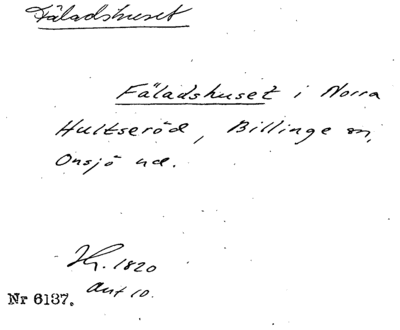 Fäladshuset
Fäladshuset i Norra
Hultseröd, Billinge sn,
Onsjö hd.
Hr. 1820
Ant 10.
Nr 6137.